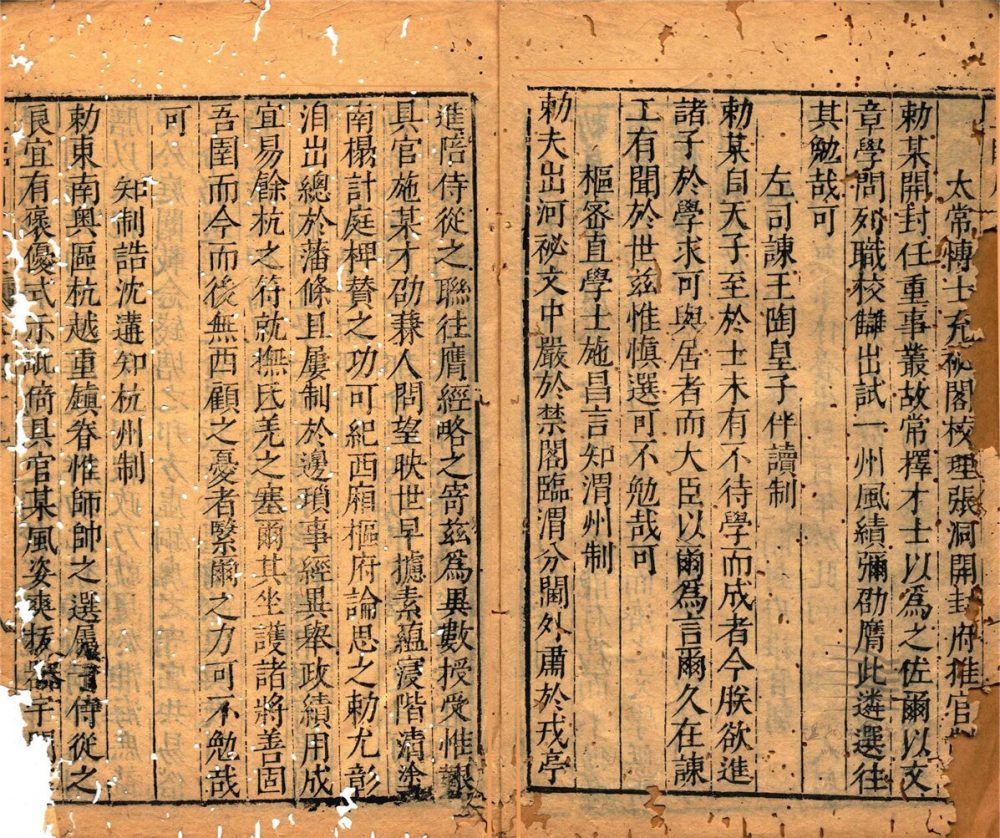 太常博士充祕閣校理張洞開封府推官
勑某開封任重事叢故常擇才士以為之佐爾以文
章學問列職校讎出試一州風績彌劭膺此遴選往
其勉哉可
左司諫王陶皇子伴讀制
勑某自天子至於士未有不待學而成者今朕欲進
諸子於學求可與居者而大臣以爾為言爾久在諫
工有聞於世茲惟慎選可不勉哉可
樞密直學士施昌言知渭州制
勑夫出河祕文中嚴於禁閣臨渭分閫外肅於戎亭
進陪侍從之聯往膺經略之寄茲為異數授受惟艱
具官施某才劭兼人問望映世早攄素蘊寖階清塗
南榻計庭椑賛之功可紀西廂樞府論思之勅尤彰
洎出總於藩條且屢制於邊瑣事經異舉政績用成
宜易餘杭之符就撫氐羌之塞爾其坐護諸將善固
吾圉而今而後無西顧之憂者繄爾之力可不勉哉
可
知制誥沈遘知杭州制
勑東南奥區杭越重鎮眷惟師帥之選屬予侍從之
良宜有褒優式示毗倚具官某風姿爽拔器宇